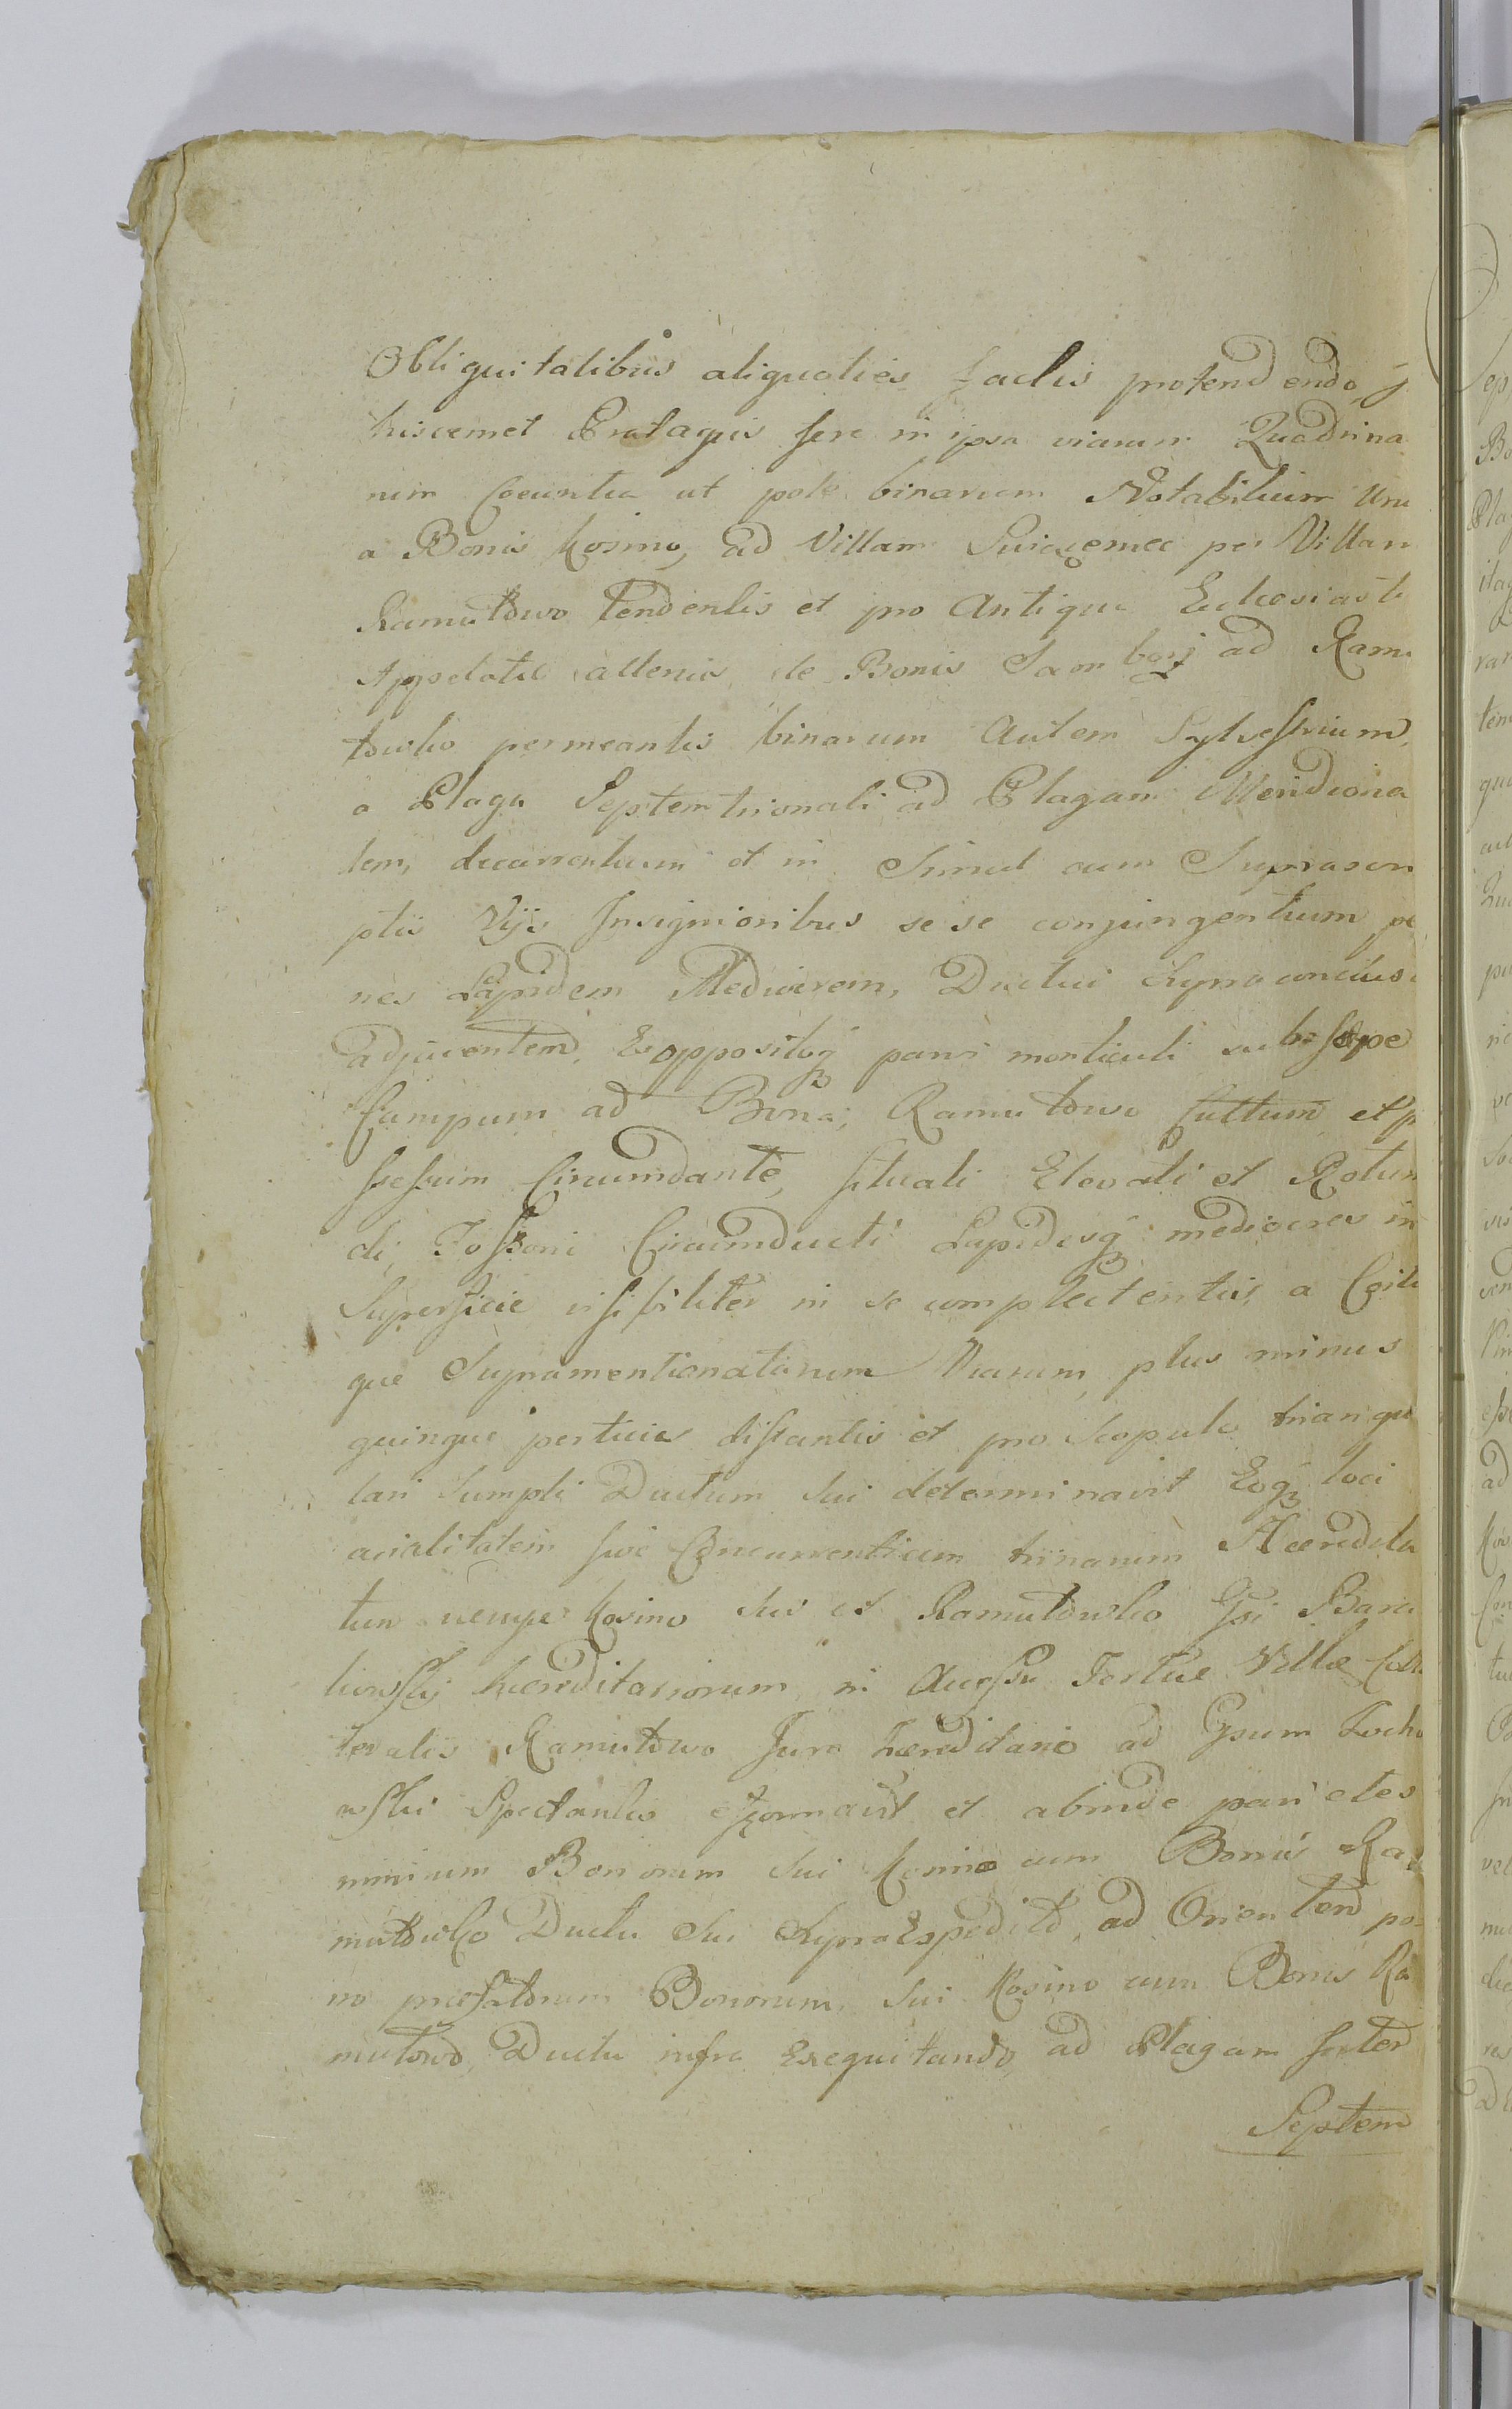 Obliquitatibus aliquoties factis protendendo, j
hiscemet Pratagiis fere in ipsa viarum Quadrina
rum Coeuntia ut pote binarum Notabilium Unu
a Bonis Kosino, ad Villam per Villam
Ramutowo tendentis et pro Antiqui
Appelatae alterius de Bonis Sambory ad Ramu
towko permeantis binarum Autem Sylvestrium,
a Plaga Septemtrionali ad Plagam Meridiona
lem, decurrentium et in Simul cum Suprascri
ptis Vijs Insignioribus se se conjungentium pe
nes Lapidem Mediocrem, Ductui Supra concluso
adjacentem, Exoppositoq parvi monticuli sub sepe
Campum ad Bona, Ramutowo Cultum et p
ssessum Circumdante, situati Elevati et Rotun
di, Fossoni Circumducti Lapidesq mediocres in
Superficie visibiliter in se complectentis, a Coitu
que Supramentionatarum Viarum, plus minus
quinque perticis distantis et pro Scopulo triangu
lari Sumpti Ductum Sui determinavit Eoq loci
acialitatem sive Concurrentiam trinarum Haeredita
tum nempe Kosino Sui et Ramutowko Gsi Bara
nowskij haereditariorum, in Tertiae Villae
teralis Ramutowo Jure haereditario ad Gsum
wski Spectantis efformavit et abinde parietes
minium Bonorum Sui Kosino cum Bonis Ra
mutowko Ductu Sui Supra Expedito, ad Orientem po
no praefatorum Bonorum, Sui Kosino cum Bonis Ra
mutowo, Ductu infra Exequitando, ad Plagam
Septem